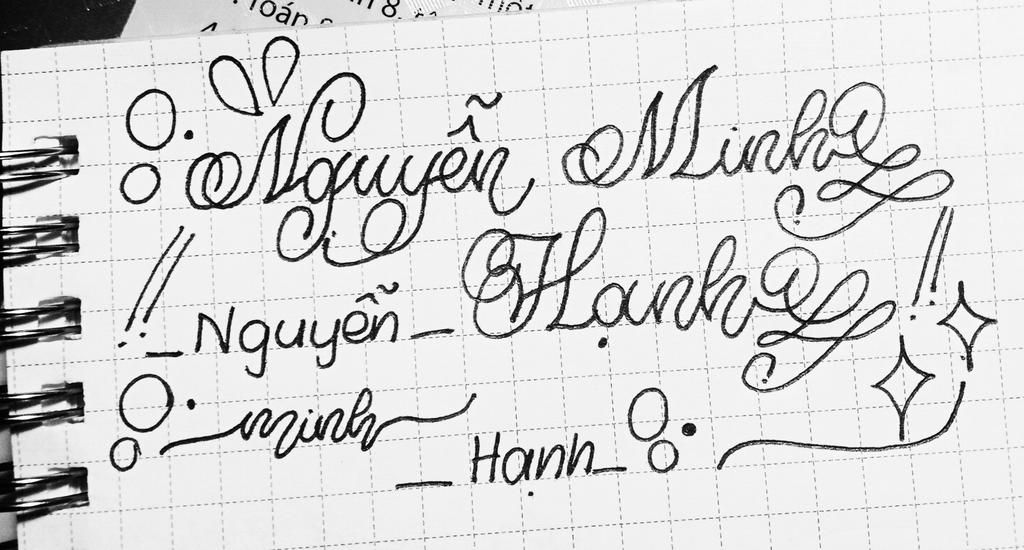 Toán
8
Nguyễn Minh
Hạnh
_Nguyễn_
minh
_Hạnh_